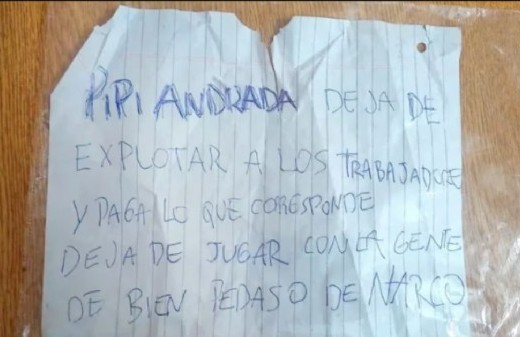 PIPI ANDRADA DEJA DE
EXPLOTAR A LOS TRABAJADORE
Y PAGA LO QUE CORRESPONDE
DEJA DE JUGAR CON LA GENTE
DE BIEN PEDASO DE NARCO